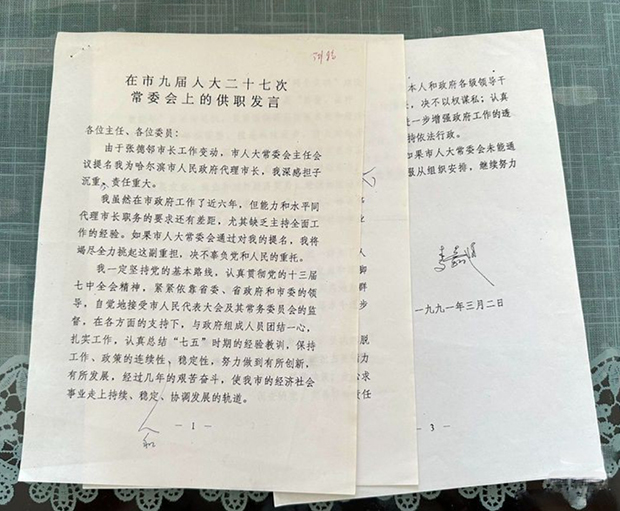 在市九届人大二十七次
常委会上的供职发言
各位主任、各位委员：
由于张德邻市长工作变动，市人大常委会主任会
议提名我为哈尔滨市人民政府代理市长，我深感担子
沉重，责任重大。
我虽然在市政府工作了近六年，但能力和水平同
代理市长职务的要求还有差距，尤其缺乏主持全面工
作的经验。如果市人大常委会通过对我的提名，我将
竭尽全力挑起这副重担，决不辜负党和人民的重托。
我一定坚持党的基本路线，认真贯彻党的十三届
七中全会精神，紧紧依靠省委、省政府和市委的领
导，自觉地接受市人民代表大会及其常务委员会的监
督，在各方面的支持下，与政府组成人员团结一心，
扎实工作，认真总结“七五”时期的经验教训，保持
工作、政策的连续性、稳定性，努力做到有所创新，
有所发展，经过几年的艰苦奋斗，使我市的经济社会
事业走上持续、稳定、协调发展的轨道。
人和
— 1 —
人
群
步
脱
力
求
责任
本人和政府各级领导干
，决不以权谋私；认真
一步增强政府工作的透
持依法行政。
如果市人大常委会未能通
服从组织安排，继续努力
一九九一年三月二日
— 3 —